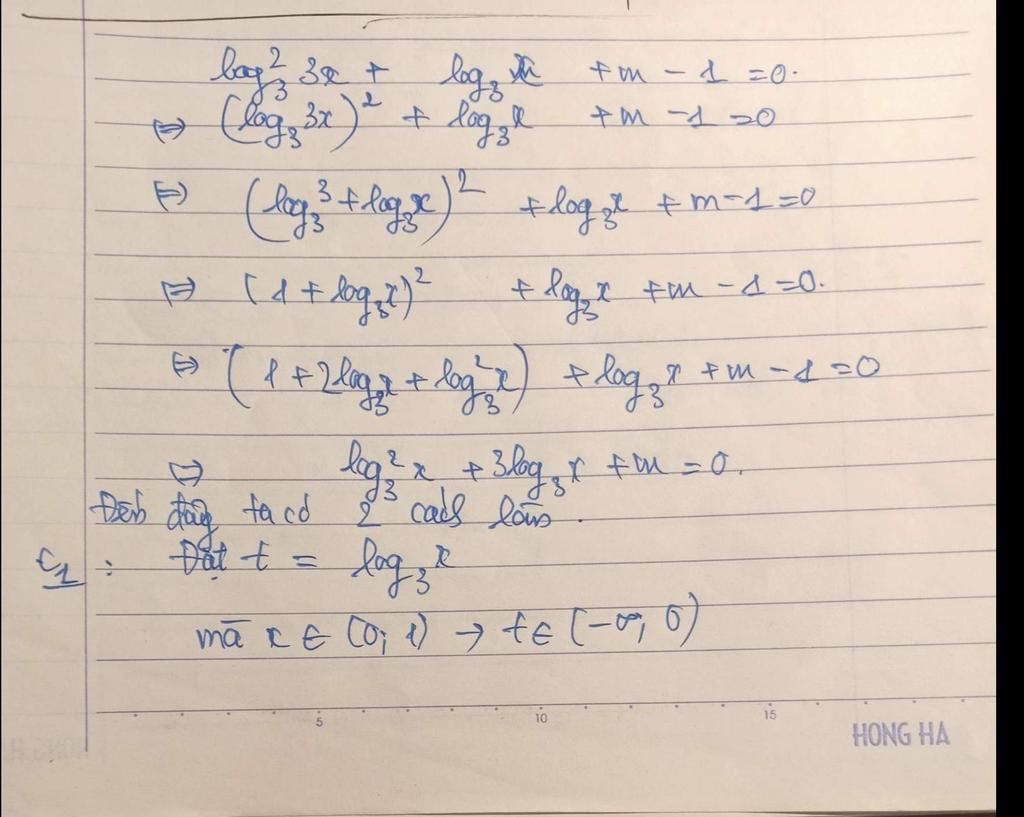 log₃² 3x + log₃ x + m - 1 = 0.
⇔ (log₃ 3x)² + log₃ x + m - 1 = 0
⇔ (log₃ 3 + log₃ x)² + log₃ x + m - 1 = 0
⇔ (1 + log₃ x)² + log₃ x + m - 1 = 0.
⇔ (1 + 2log₃ x + log₃² x) + log₃ x + m - 1 = 0
⇔ log₃² x + 3log₃ x + m = 0.
Đến đây ta có 2 cách làm.
C₁: Đặt t = log₃ x
mà x ∈ (0; 1) → t ∈ (-∞; 0)
5 10 15
HONG HA